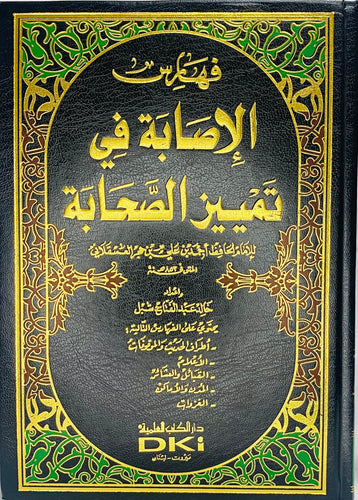 فهارس
الإصابة في
تمييز الصحابة
للإمام الحافظ أحمد بن علي بن حجر العسقلاني
المتوفى ٨٥٢ هـ سنة
إعداد
خالد عبد الفتاح شبل
يحتوي على الفهارس التالية:
- أطراف الحديث والموقوفات
- الأعلام
- القبائل والعشائر
- المدن والأماكن
- الغزوات
دار الكتب العلمية
DKi
بيروت - لبنان